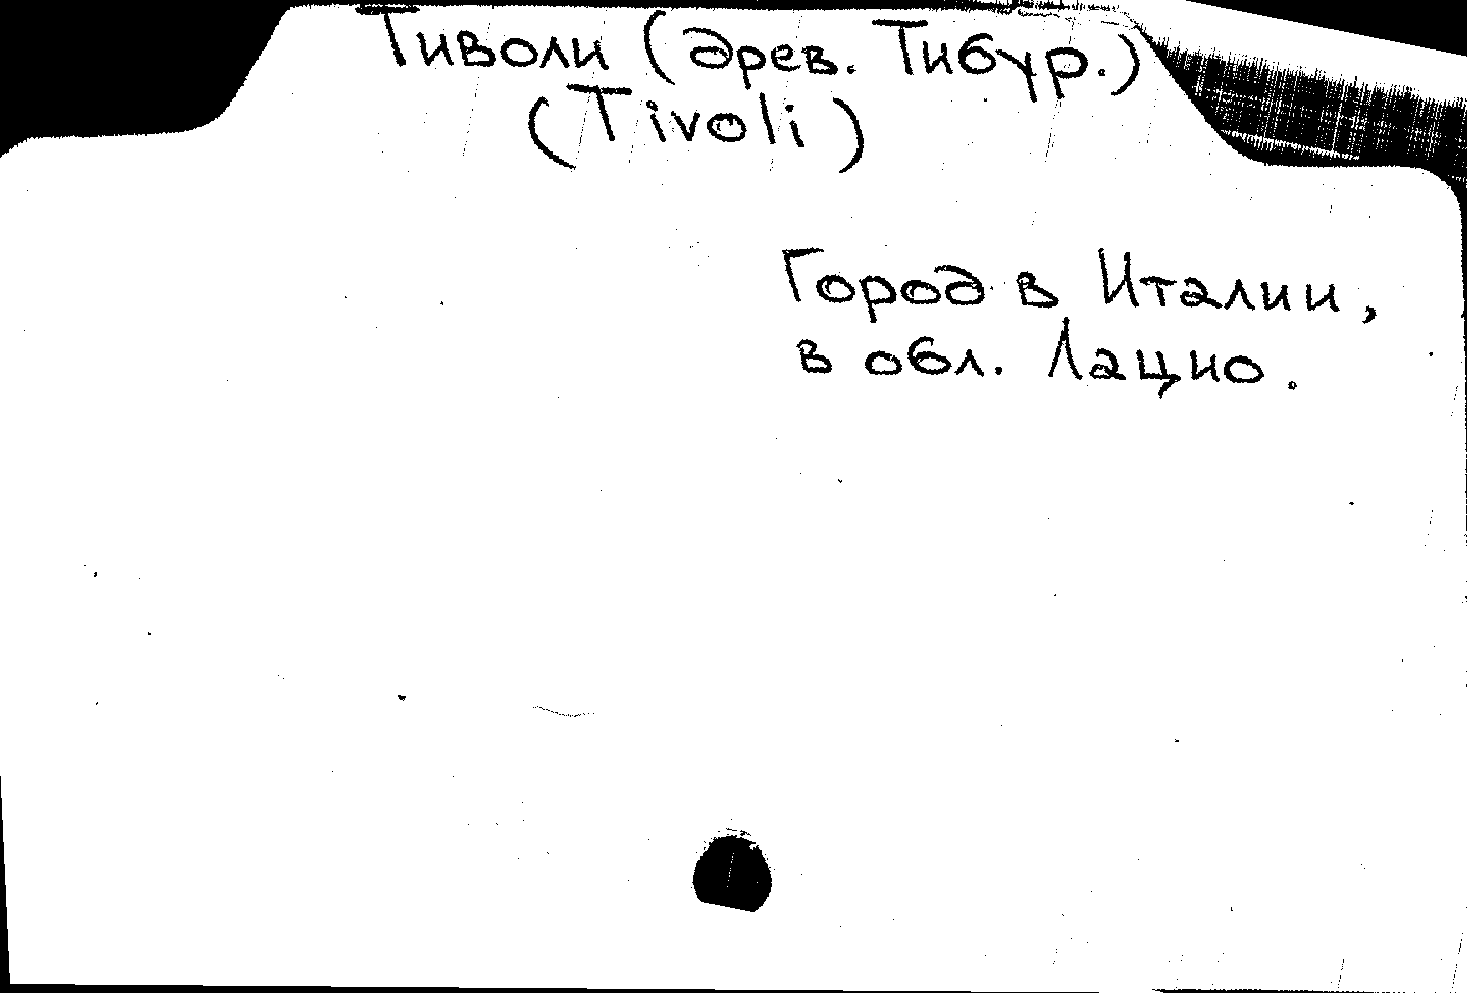 Тиволи (древ. Тибур.)
(Tivoli)
Город в Италии,
в обл. Лацио.